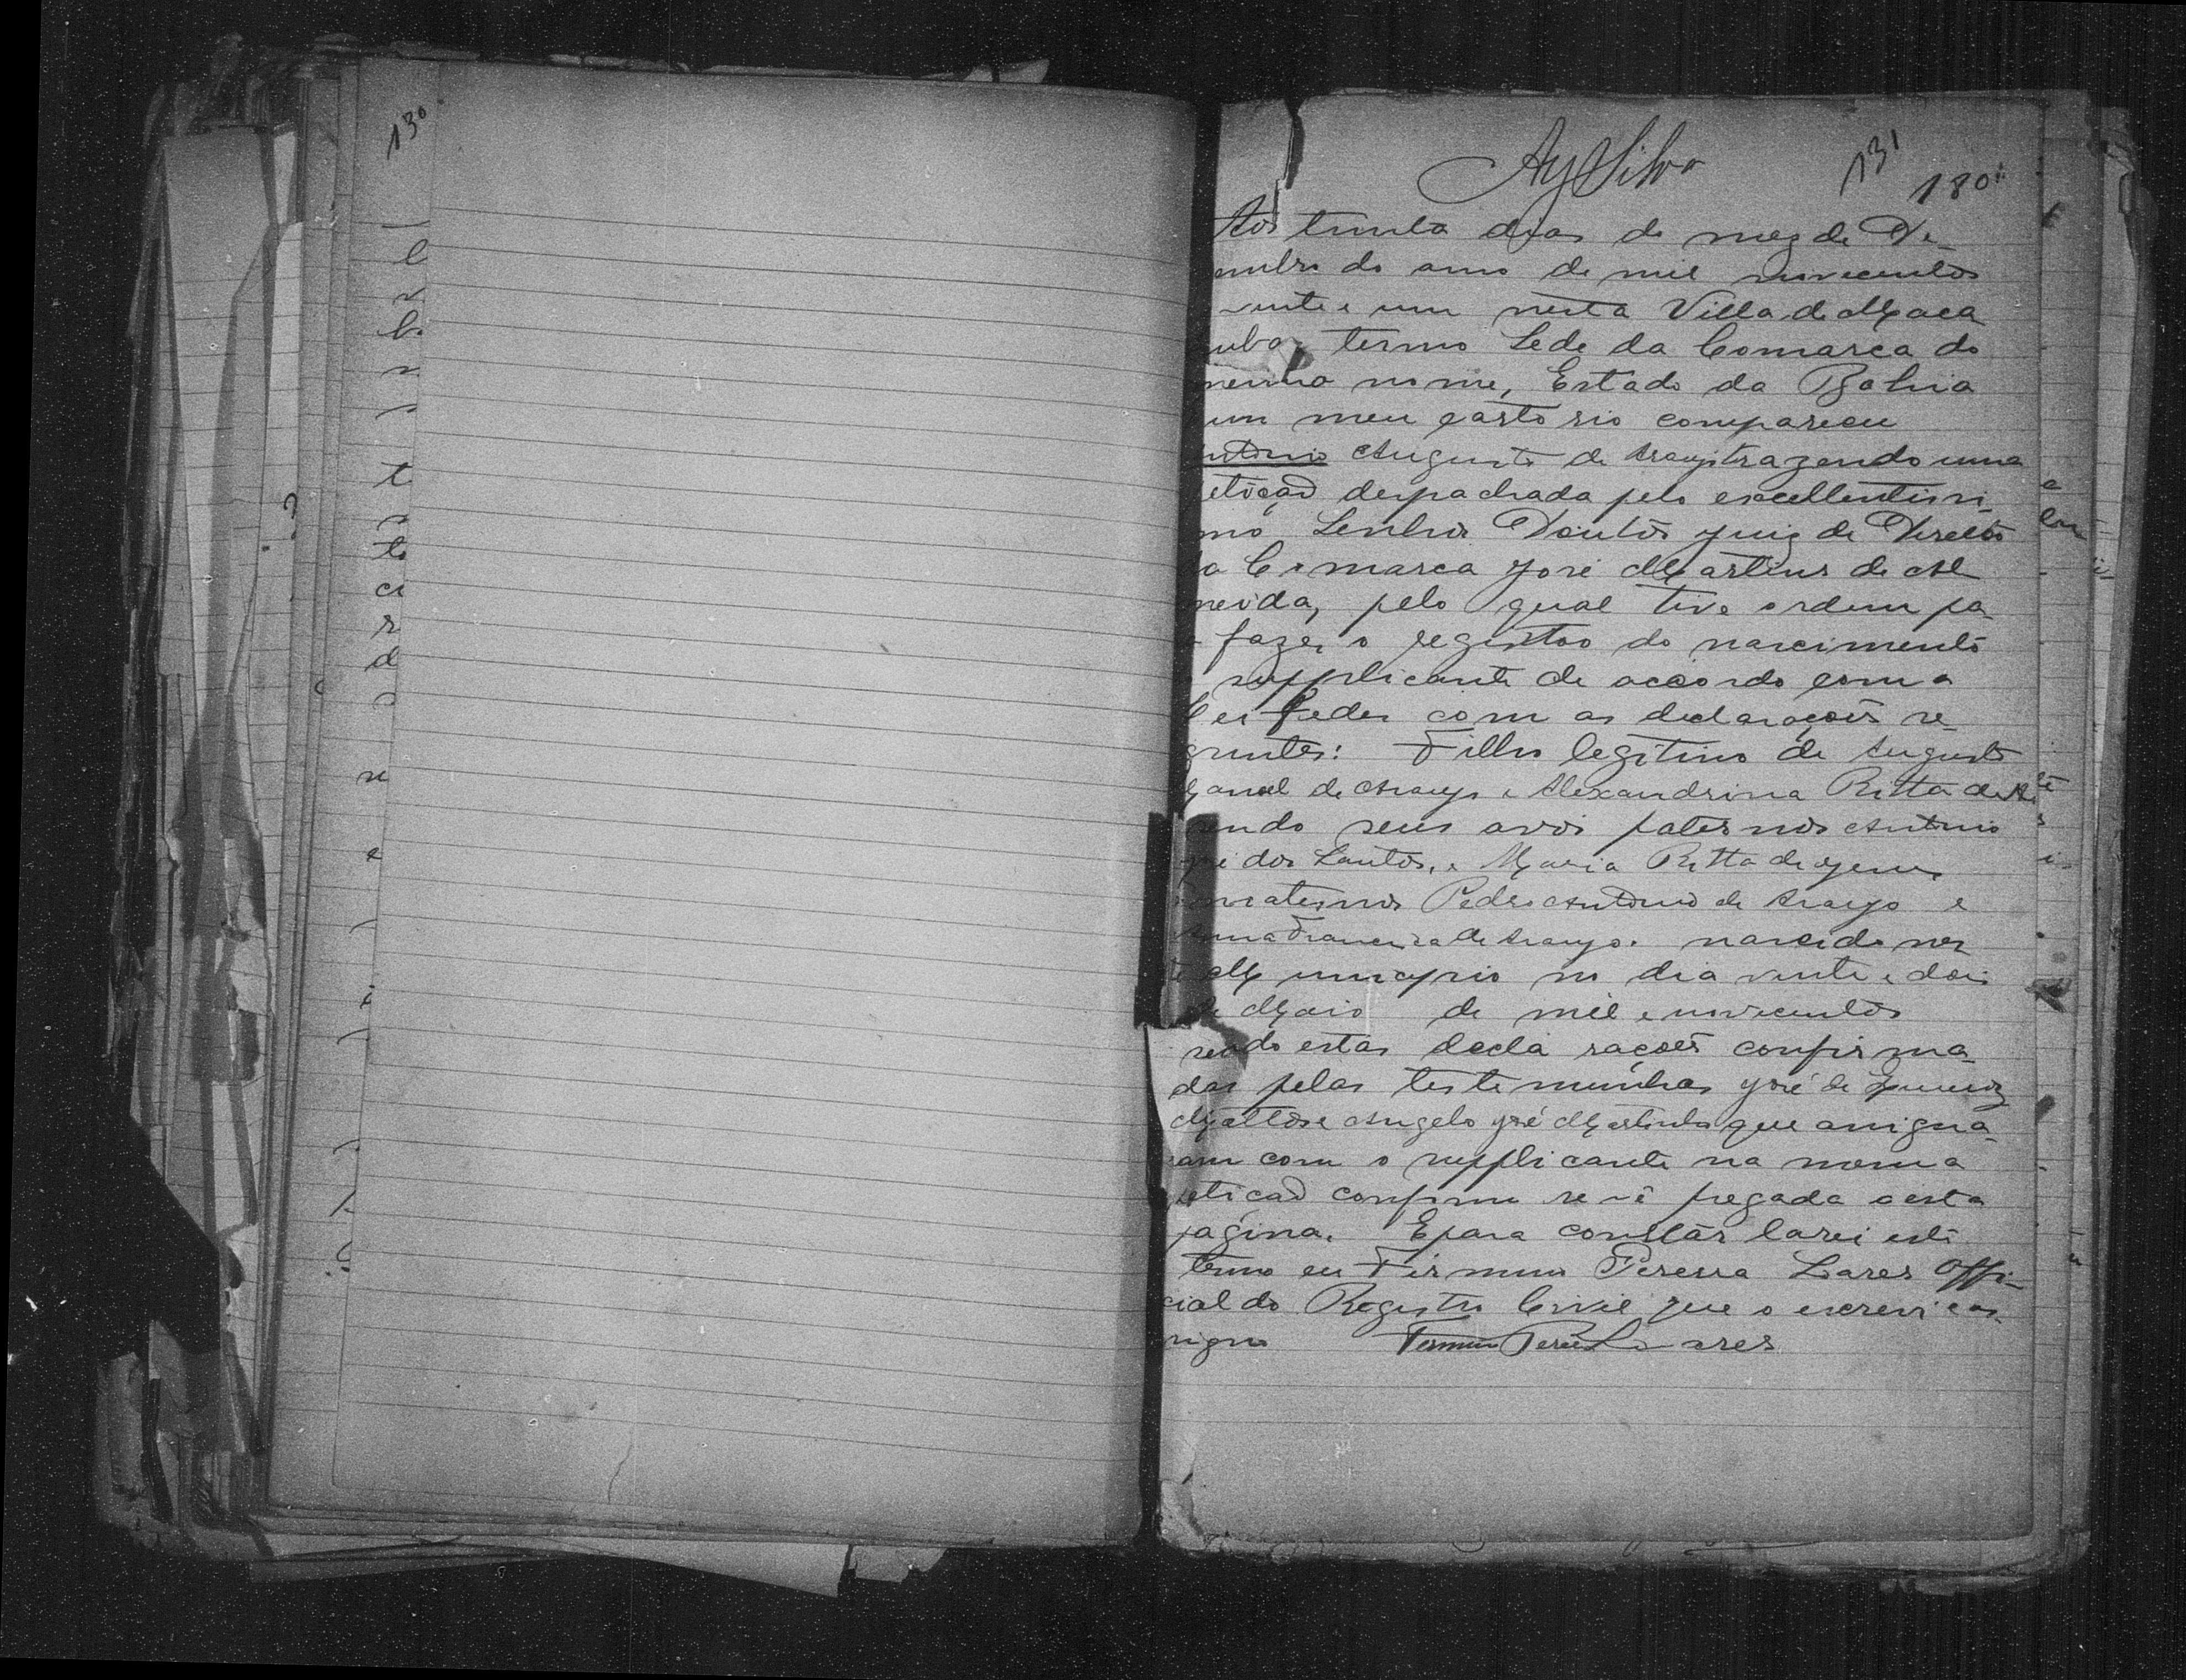 130
AySilva
131
180
Aos trinta dias do mez de De-
embro do anno de mil novecentos
vinte e um nesta Villa de Maca
ubas termo Sede da Comarca do
mesmo nome, Estado da Bahia
em meu cartorio compareceu
ntonio Augusto de Araujo trazendo uma
etição despachada pelo excellentissi-
mo Senhor Doutor Juiz de Direito
a Comarca José Martins de Al
meida, pelo qual tive ordem pa-
fazer o registro do nascimento
supplicante de accordo com a
Lei Feder com as declarações se-
guintes: Filho legitimo de Augusto
de Araujo e Alexandrina Ritta de
sendo seus avós paternos Antonio
José dos Santos, e Maria Ritta de Jesus
maternos Pedro Antonio de Araujo e
Anna Francisca de Araujo. nascido nes
te Municipio no dia vinte e dois
de Maio de mil e novecentos
sendo estas declarações confirma-
das pelas testemunhas José de
Mattos e Angelo José Martinho que assigna-
ram com o supplicante na mesma
petição conforme se vê pregada a esta
pagina. E para constar lavrei este
termo eu Firmino Pereira Lares Offi-
cial do Registro Civil que o escrevi e as-
signo Firmino Pereira Lares